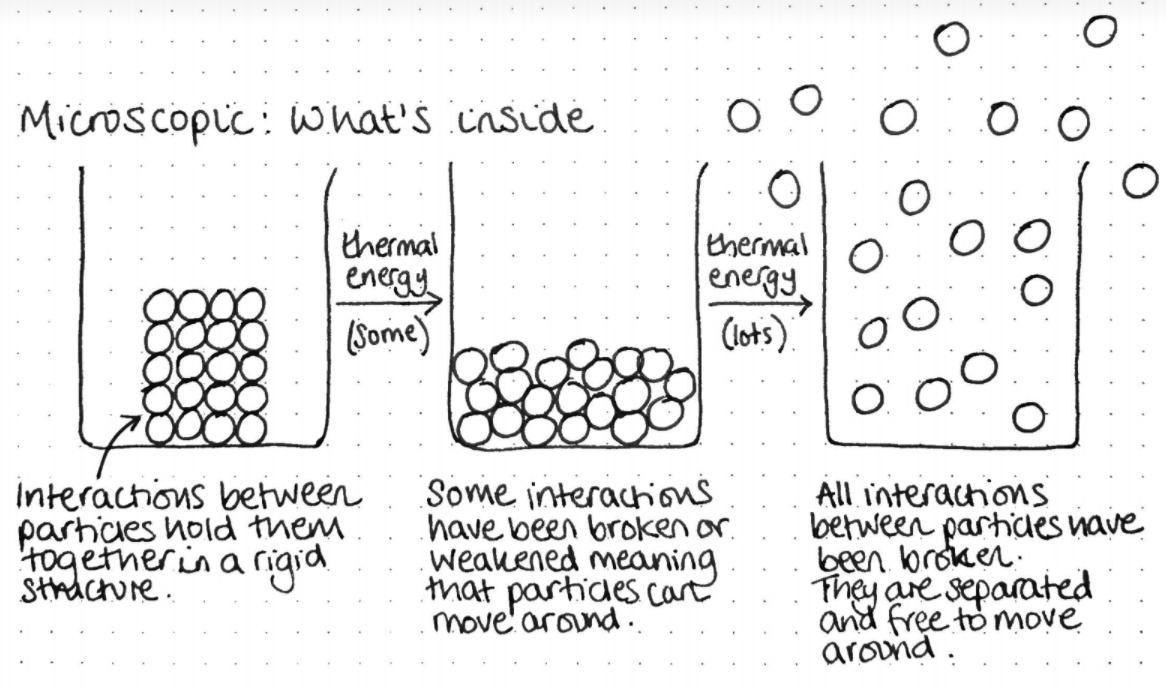 Microscopic: What's inside
thermal
energy
(some)
thermal
energy
(lots)
Interactions between
particles hold them
together in a rigid
structure.
Some interactions
have been broken or
weakened meaning
that particles can
move around.
All interactions
between particles have
been broken.
They are separated
and free to move
around.